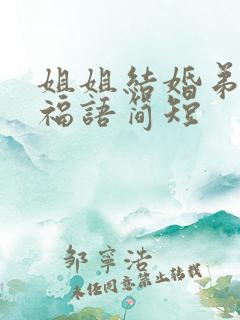 姐姐結婚弟
福語簡短
邹寧浩
未经同意禁止转载